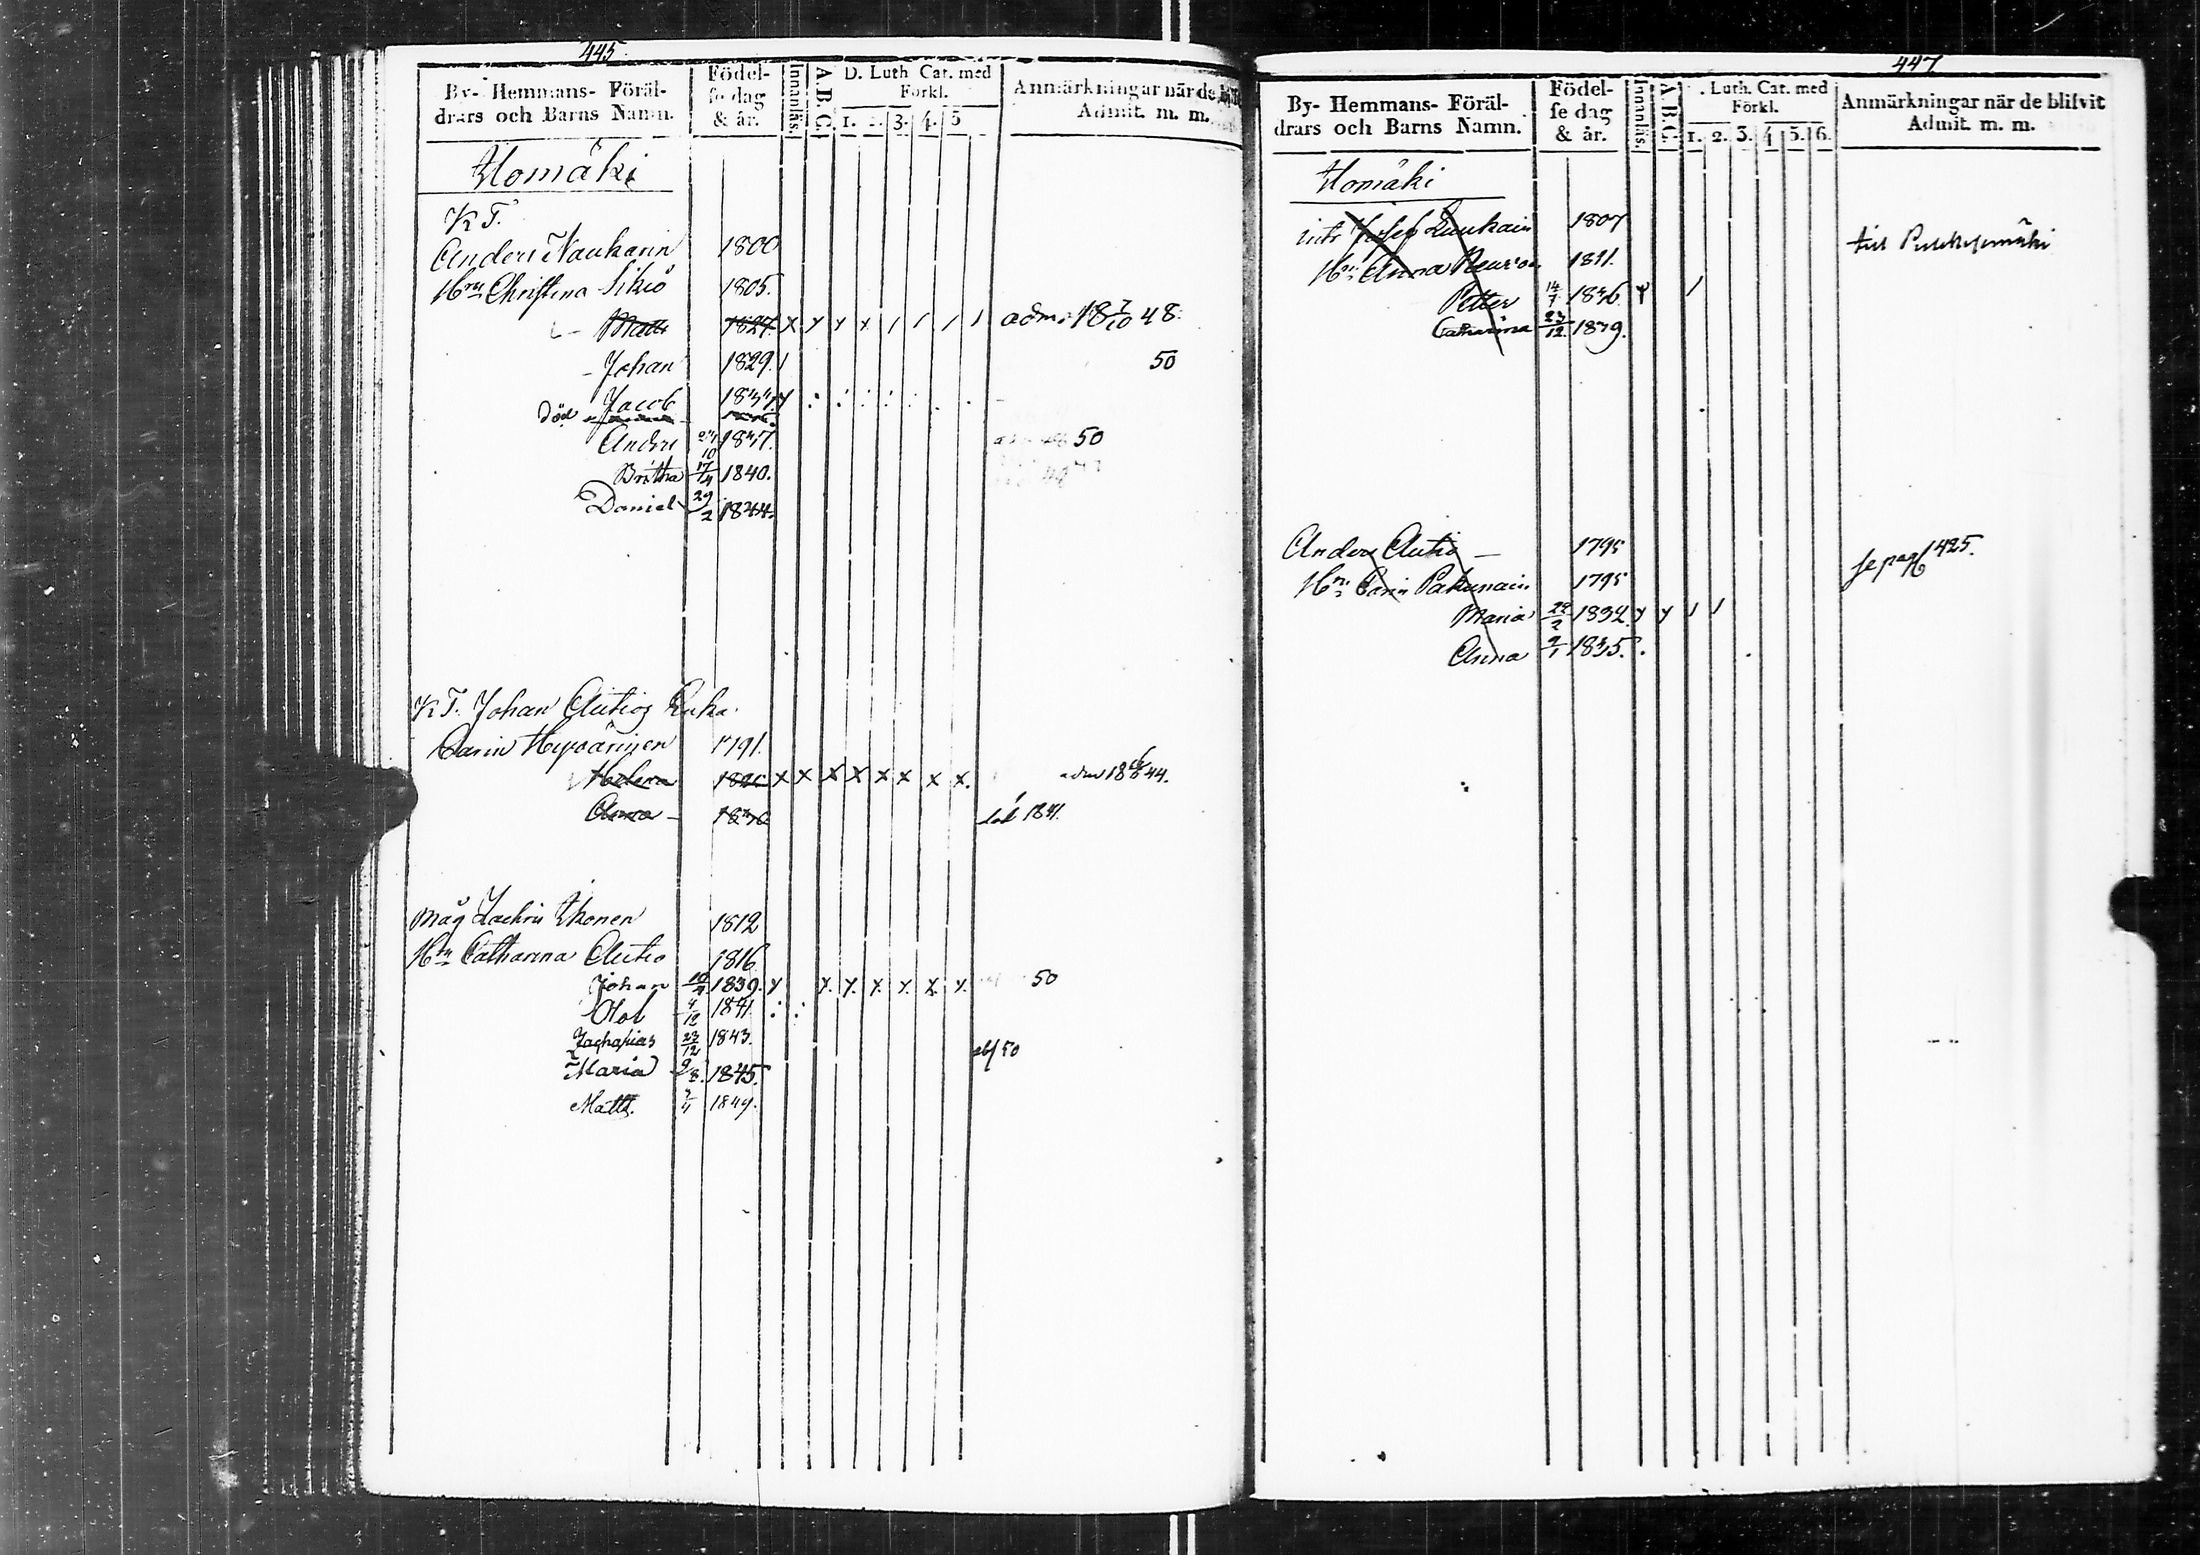 445
By- Hemmans- Föräl-
drars och Barns Namn.
Födel-
se dag
& år.
Innanläs.
A.B.C.
D. Luth Cat. med
Förkl.
1. 2. 3. 4. 5
Anmärkningar när de
Admit. m. m.
Homäki
K T.
Anders Naukarin 1800
Hru Christina Sikiö 1805.
Matts 1827. x y x x / / / / adm. 18 7/10 48.
Johan 1829. / 50
Jacob
död
Anders 1837. 50
Britha 17/4 1840.
Daniel 29/2 1844.
K T. Johan Autios Enka.
Carin Hyvärinen 1791.
Helena x x x x x x x x. 44.
Anna 1841.
Måg Zachris Ikonen 1812
Hru Catharina Autio 1816
Johan 1839. y x. y. x. x. x. x. 50
Olof 4/12 1841.
Zacharias 23/12 1843.
Maria 9/8. 1845. 50
Matts. 1849.
447
By- Hemmans- Föräl-
drars och Barns Namn.
Födel-
se dag
& år.
Innanläs.
A.B.C.
. Luth. Cat. med
Förkl.
1. 2. 3. 4 5. 6.
Anmärkningar när de blifvit
Admit. m. m.
Homäki
Josef 1807 till
Hru Anna 1811.
Petter 14/7 1836. /
Catharina 23/12. 1839.
Anders Autio — 1795 se pag 425.
Hru Carin Pakunain 1795
Maria 1832. y y / /
Anna 1835.